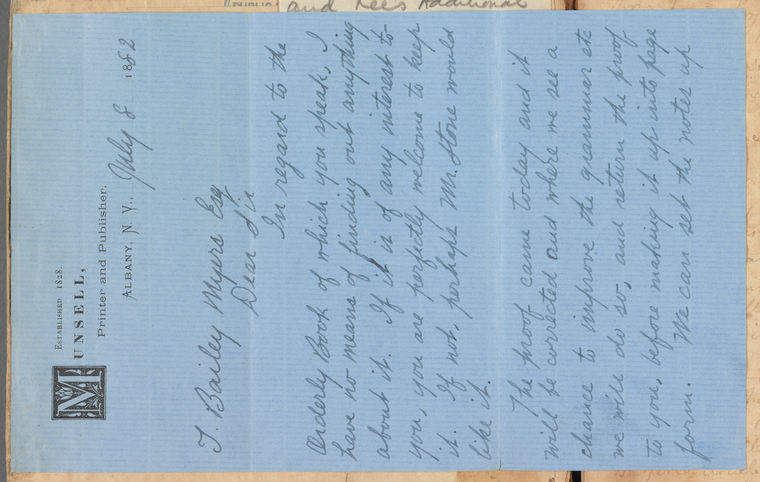 and Lees Additional
ESTABLISHED 1828.
MUNSELL,
Printer and Publisher.
ALBANY, N. Y., July 8 1882
T. Bailey Myers Esq
Dear Sir
In regard to the
Orderly Book of which you speak, I
have no means of finding out anything
about it. If it is of any interest to
you, you are perfectly welcome to keep
it. If not, perhaps Mr. Stone would
like it.
The proof came today and it
will be corrected and where we see a
chance to improve the grammar etc
we will do so, and return the proof
to you, before making it up into page
form. We can set the notes up